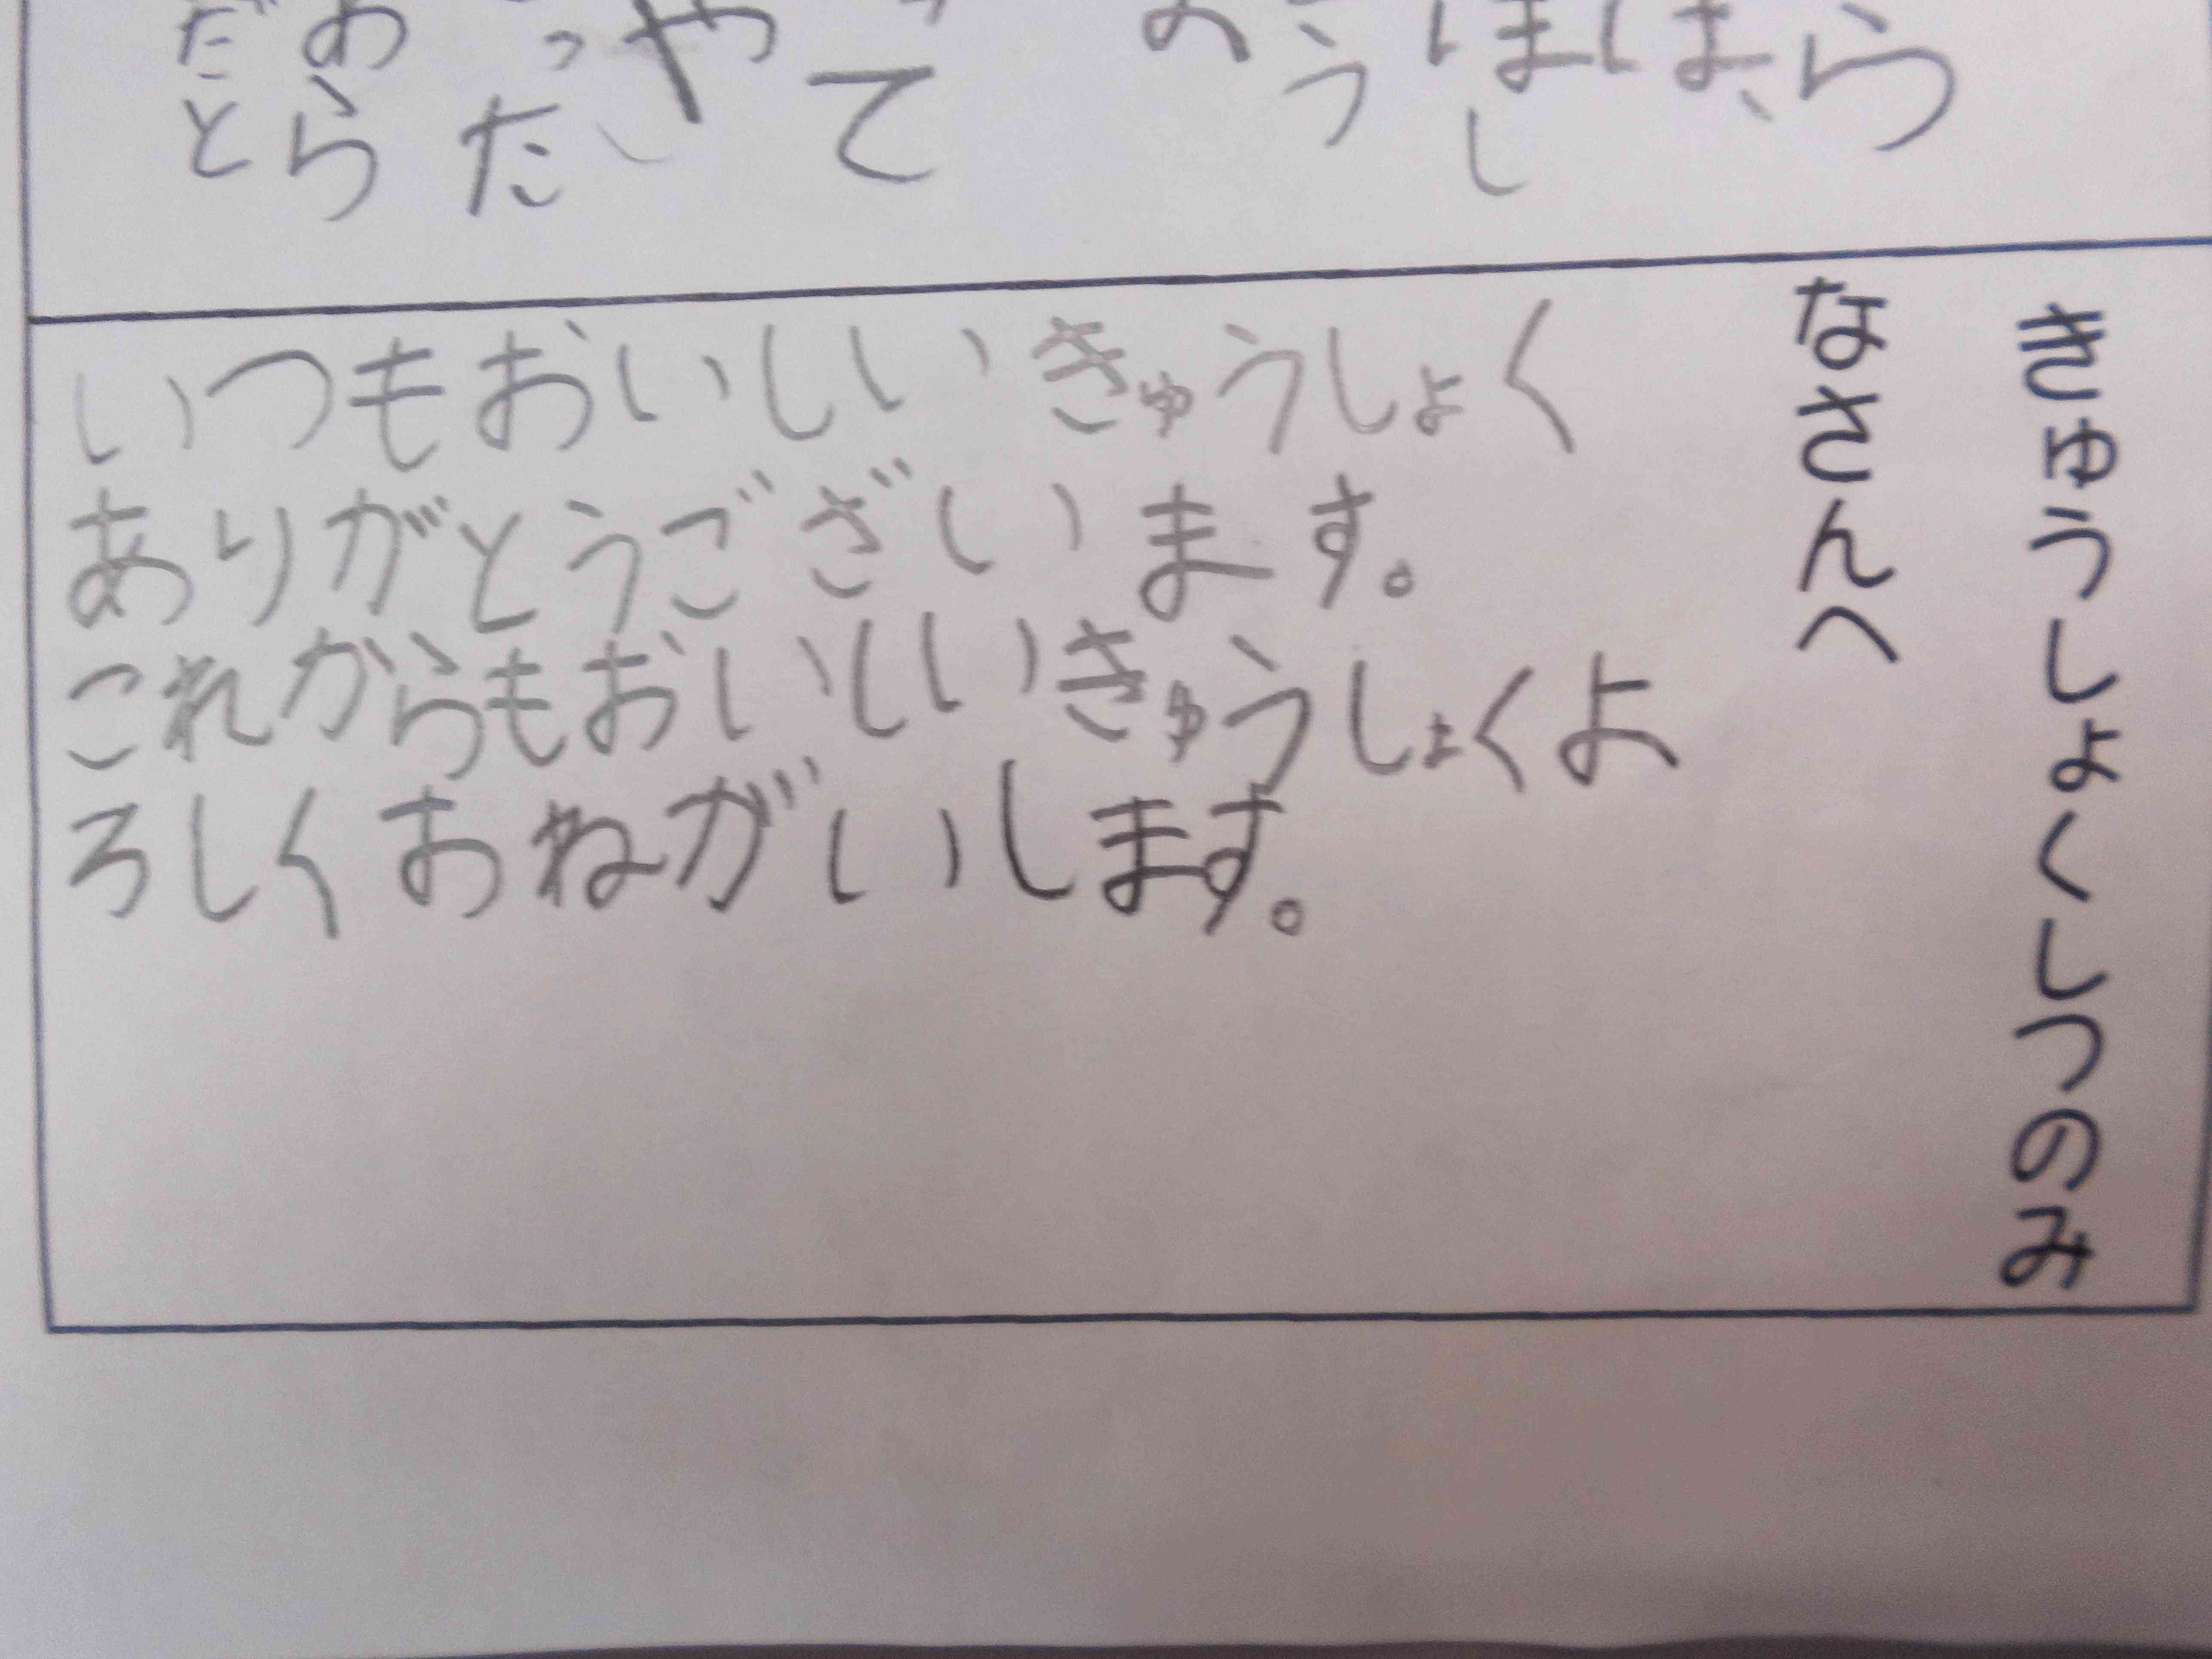 きゅうしょくしつのみ
なさんへ
いつもおいしいきゅうしょく
ありがとうございます。
これからもおいしいきゅうしょくよ
ろしくおねがいします。